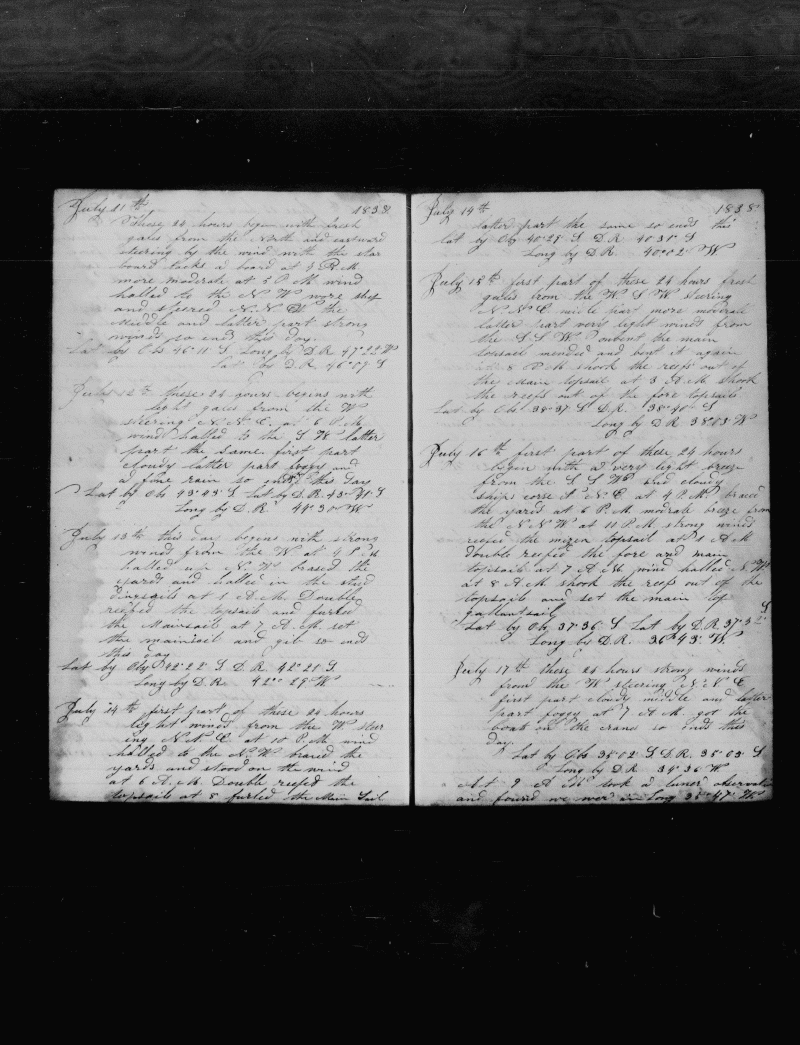 July 11th 1838
These 24 hours begin with fresh
gales from the North and eastward
steering by the wind with the star
board tacks a board at 3 P.M
more moderate at 5 P M wind
halled to the N W wore ship
and steered N. N E the
Middle and latter part strong
winds so ends this day.
Lat by Obs 46°11' S Long by D.R 47°22 W
Lat by D.R. 46°09 S
July 12th these 24 hours begins with
light gales from the W
steering N. N E. at 6 P.M.
wind halled to the S W latter
part the same. first part
cloudy latter part foggy and
a fine rain so ends this day
Lat by Obs 43°43' S Lat by D.R. 43°41' S
Long by D.R. 44°30 W
July 13th this day begins with strong
winds from the W at 4 P. M
halled up N. W brased the
yards and halled in the stud
dingsails at 1 A. M. Double
reefed the topsails and furled
the Mainsails at 7 A. M. set
the mainsail and gib so ends
this day
Lat by Obs 42°22' S D.R. 42°21' S
Long by D.R. 42° 29 W
July 14th first part of these 24 hours
light winds from the W. steer
ing N. N E. at 10 P.M wind
halled to the N.W braced the
yards and stood on the wind
at 6 A. M. Double reefed the
topsails at 8 furled the Main Sail
July 14th 1838
latter part the same so ends this
Lat by Obs 40°29' S D.R. 40°31' S
Long by D.R. 40°02' W
July 15th first part of these 24 hours fresh
gales from the W S W steering
N. N. E midle part more moderate
latter part very light winds from
the S S W. onbent the main
topsail mended and bent it again
at 8 P M shook the reefs out of
the Main topsail at 3 A.M. shook
the reefs out of the fore topsails
Lat by Obs 38°37' S D.R. 38°40' S
Long by D R 38°03 W
July 16th first part of these 24 hours
began with a very light breeze
from the S S W and cloudy
ship corse N. E. at 4 P.M. braced
the yards at 6 P.M modrate breeze from
the N.N W at 11 P M strong winds
reefed the mizen topsail at 1 A M
double reefed the fore and main
topsails at 7 A. M. wind halled N. W.
at 8 A. M shook the reefs out of the
topsails and set the main top
gallantsail
Lat by Obs 37°36' S Lat by D.R. 37°32' S
Long by D.R. 36°43' W
July 17th these 24 hours strong winds
from the W steering N. N E
first part cloudy middle and latter
part foggy at 7 A M. got the
boat on the crans so ends this
day.
Lat by Obs 35°02' S D.R. 35°03' S
Long by D.R 34°36 W
At 9 A M took a lunar observation
and found we wer in Long 35°47' W